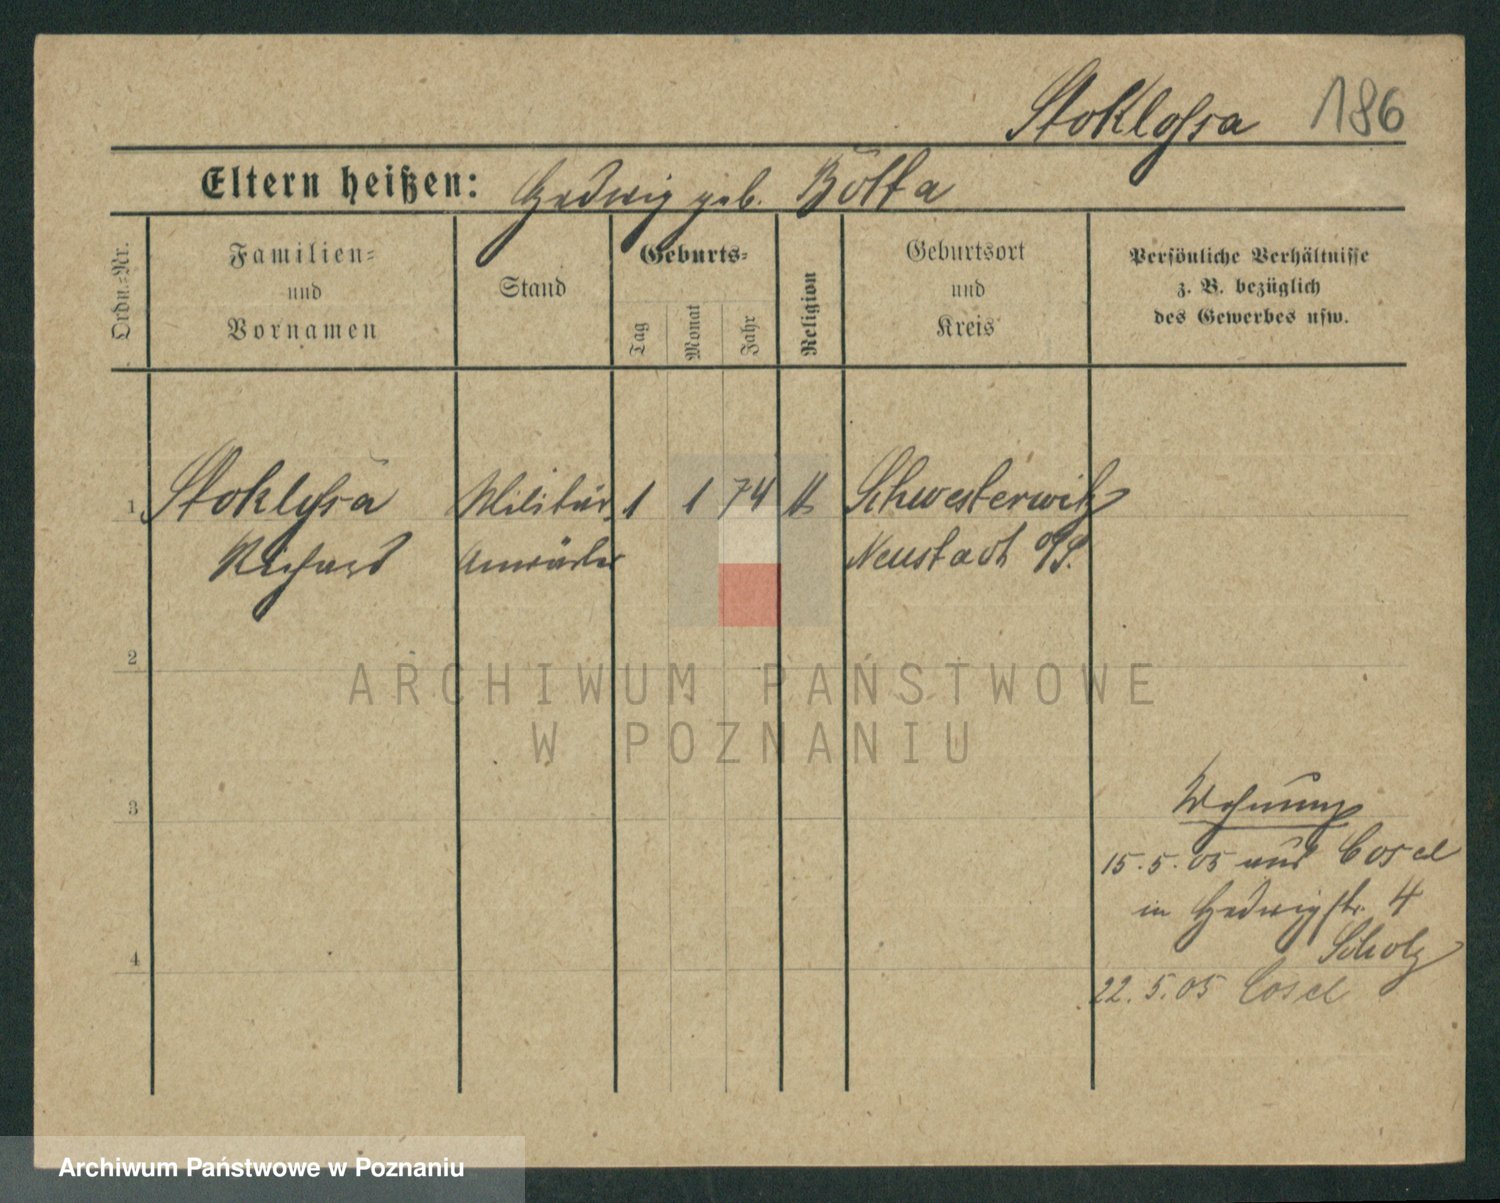 Stoklossa 186
Eltern heißen: Hedwig geb. Botta
Ordn.-Nr.
Familien-
und
Vornamen
Stand
Geburts-
Tag
Monat
Jahr
Religion
Geburtsort
und
Kreis
Persönliche Verhältnisse
z. B. bezüglich
des Gewerbes usw.
1 Stoklossa Militär 1 1 74 Schwesterwitz
Richard Anwärter Neustadt O/S.
2
ARCHIWUM PAŃSTWOWE
W POZNANIU
3
Wohnung
15.5.05 aus Cosel
in Hedwigstr. 4
Scholz
4
22.5.05 Cosel
Archiwum Państwowe w Poznaniu